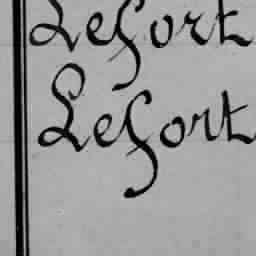 Lefort
Lefort